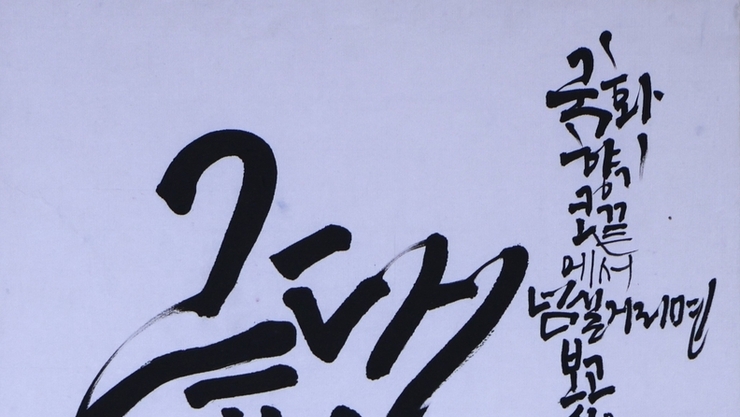 그대
국화
향기
코끝
에서
넘실거리면
보고